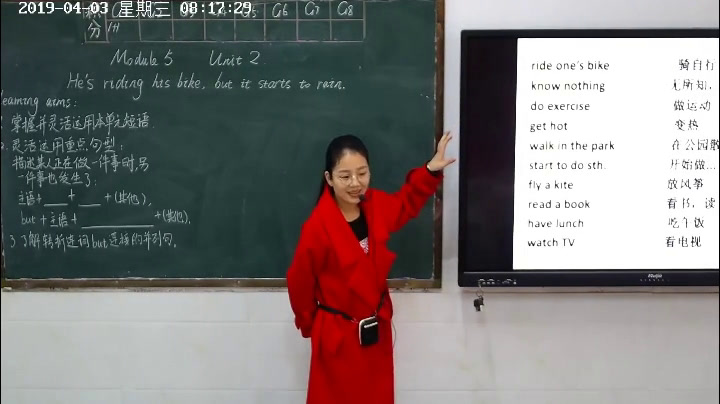 2019-04-03 星期三 08:17:29
积分 G5 G6 G7 G8
Module 5 Unit 2
He's riding his bike, but it starts to rain.
earning aims:
掌握并灵活运用本单元短语.
灵活运用重点句型:
描述某人正在做一件事时,另
一件事也发生了:
主语+___+___+(其他),
but+主语+______+(其他).
3 了解转折连词but连接的并列句.
ride one's bike 骑自行
know nothing 无所知,
do exercise 做运动
get hot 变热
walk in the park 在公园散
start to do sth. 开始做…
fly a kite 放风筝
read a book 看书, 读
have lunch 吃午饭
watch TV 看电视